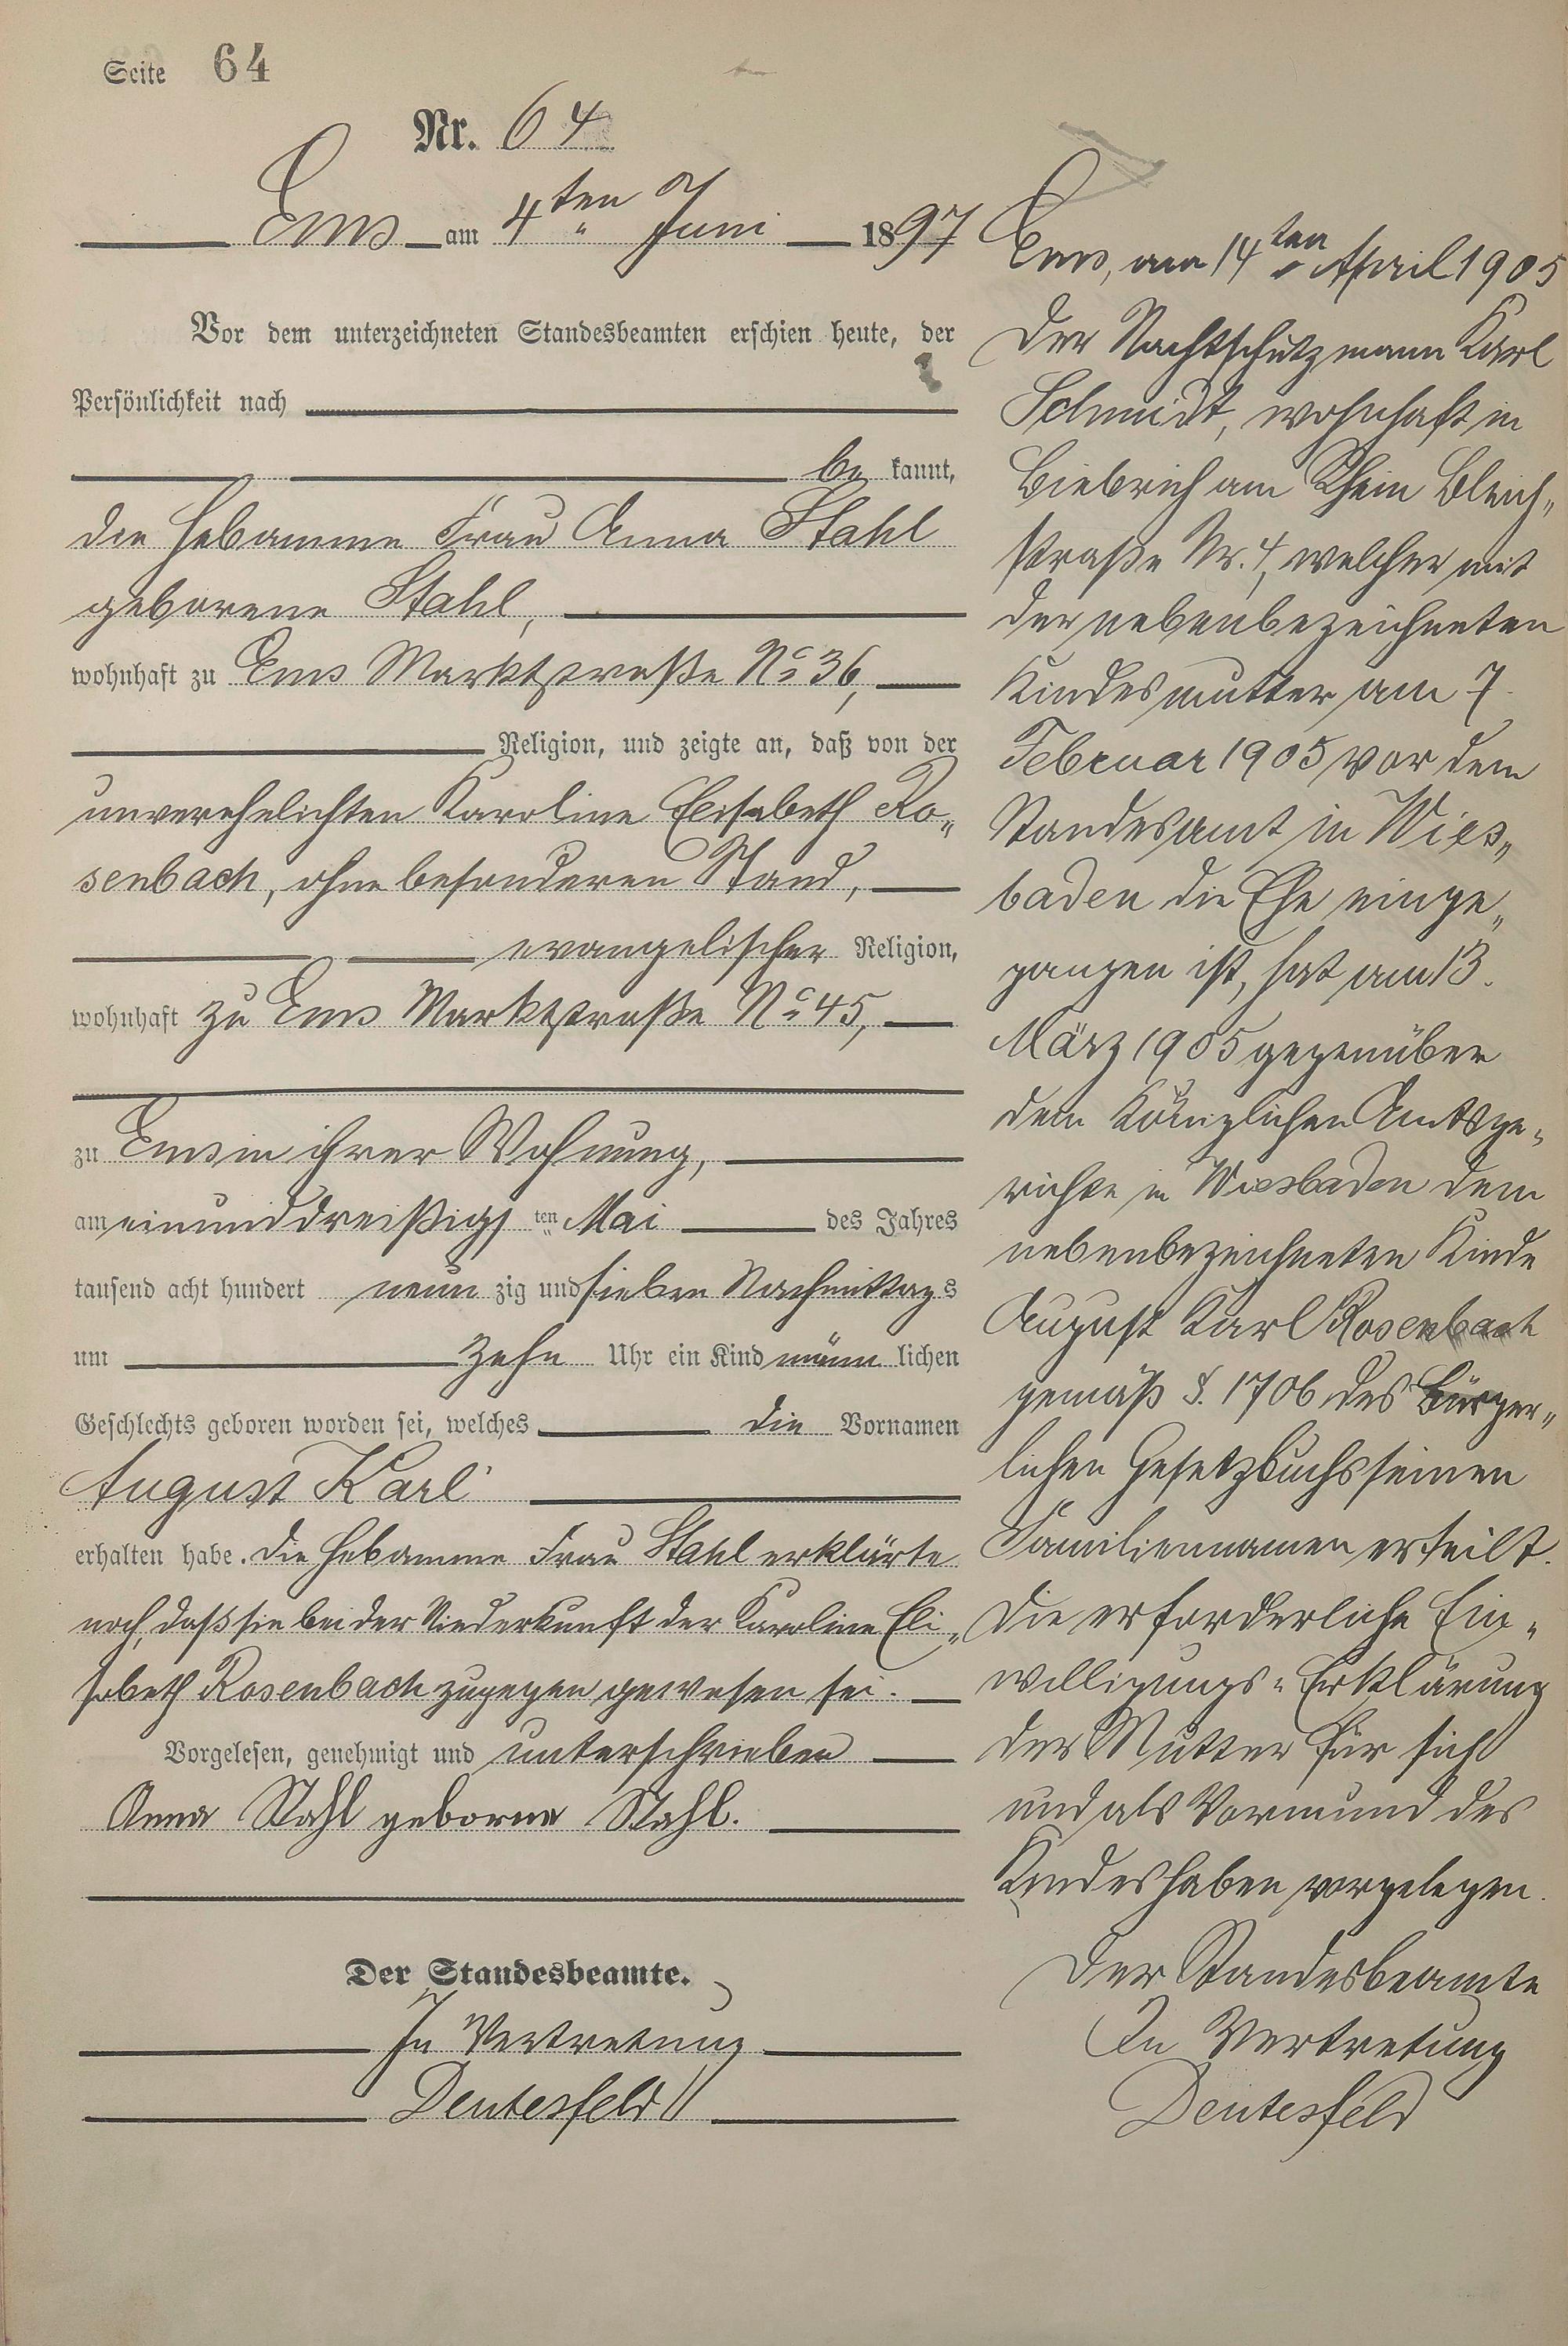 Seite 64
Nr. 64
Ems am 4ten Juni 1897
Vor dem unterzeichneten Standesbeamten erschien heute, der
Persönlichkeit nach
be kannt,
die Hebamme Frau Anna Stahl
geborene Stahl,
wohnhaft zu Ems Marktstraße No 36,
Religion, und zeigte an, daß von der
unverehelichten Karoline Elisabeth Ro„
senbach, ohne besonderen Stand,
evangelischer Religion,
wohnhaft zu Ems Marktstraße No 45,
zu Ems in ihrer Wohnung,
am einunddreißigs ten Mai des Jahres
tausend acht hundert neun zig und sieben Nachmittags
um zehn Uhr ein Kind männ lichen
Geschlechts geboren worden sei, welches die Vornamen
August Karl
erhalten habe. Die Hebamme Frau Stahl erklärte
noch, daß sie bei der Niederkunft der Karoline Eli„
sabeth Rosenbach zugegen gewesen sei.
Vorgelesen, genehmigt und unterschrieben
Anna Stahl geborne Stahl.
Der Standesbeamte.
In Vertretung
Deutesfeld
Ems, am 14ten April 1905
Der Nachtschutzmann Karl
Schmidt, wohnhaft in
Biebrich am Rhein Bleich„
straße Nr. 4, welcher mit
der nebenbezeichneten
Kindesmutter am 7.
Februar 1905 vor dem
Standesamt in Wies„
baden die Ehe einge„
gangen ist, hat am 13.
März 1905 gegenüber
dem Königlichen Amtsge„
richte in Wiesbaden dem
nebenbezeichneten Kinde
August Karl Rosenbach
gemäß §. 1706 des Bürger„
lichen Gesetzbuchs seinen
Familiennamen erteilt.
Die erforderliche Ein„
willigungs„Erklärung
der Mutter für sich
und als Vormund des
Kindes haben vorgelegen.
Der Standesbeamte
In Vertretung
Deutesfeld